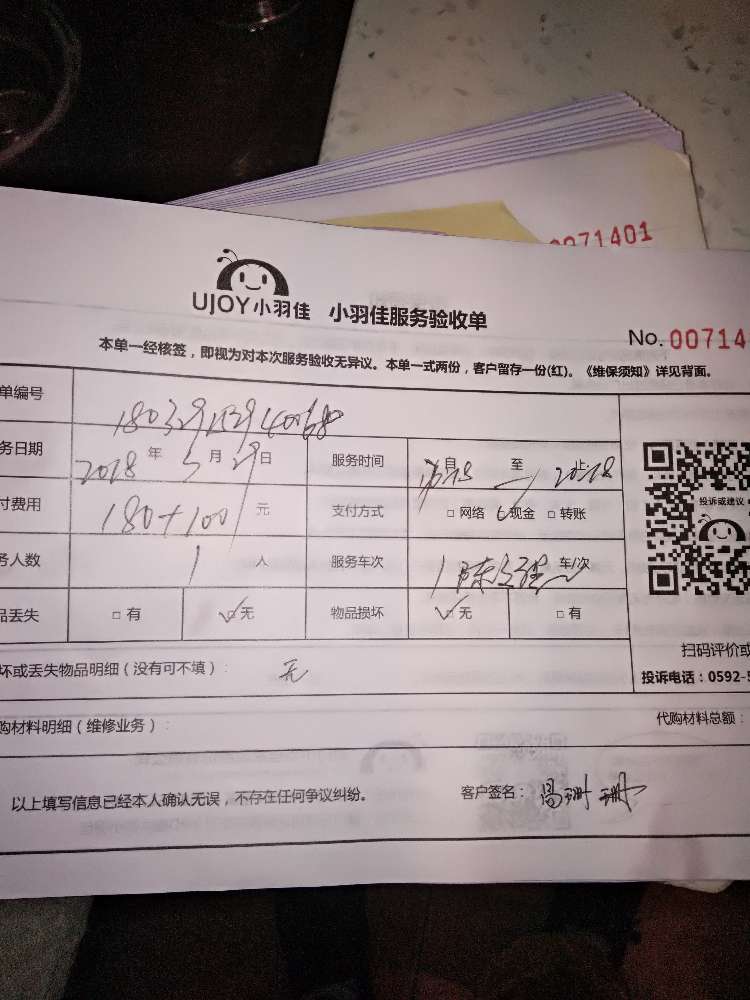 0071401
UJOY小羽佳 小羽佳服务验收单
No. 00714
本单一经核签，即视为对本次服务验收无异议。本单一式两份，客户留存一份(红)。《维保须知》详见背面。
单编号
务日期 2018 年 3 月 29 日 服务时间 自 至 20:18 止
付费用 180+100 元 支付方式 □ 网络 现金 □ 转账
务人数 1 人 服务车次 1 车/次
品丢失 □ 有 □ 无 物品损坏 □ 无 □ 有
投诉或建议
坏或丢失物品明细（没有可不填）: 无
扫码评价或
投诉电话：0592-5
购材料明细（维修业务）:
代购材料总额：
以上填写信息已经本人确认无误，不存在任何争议纠纷。 客户签名：高珊珊